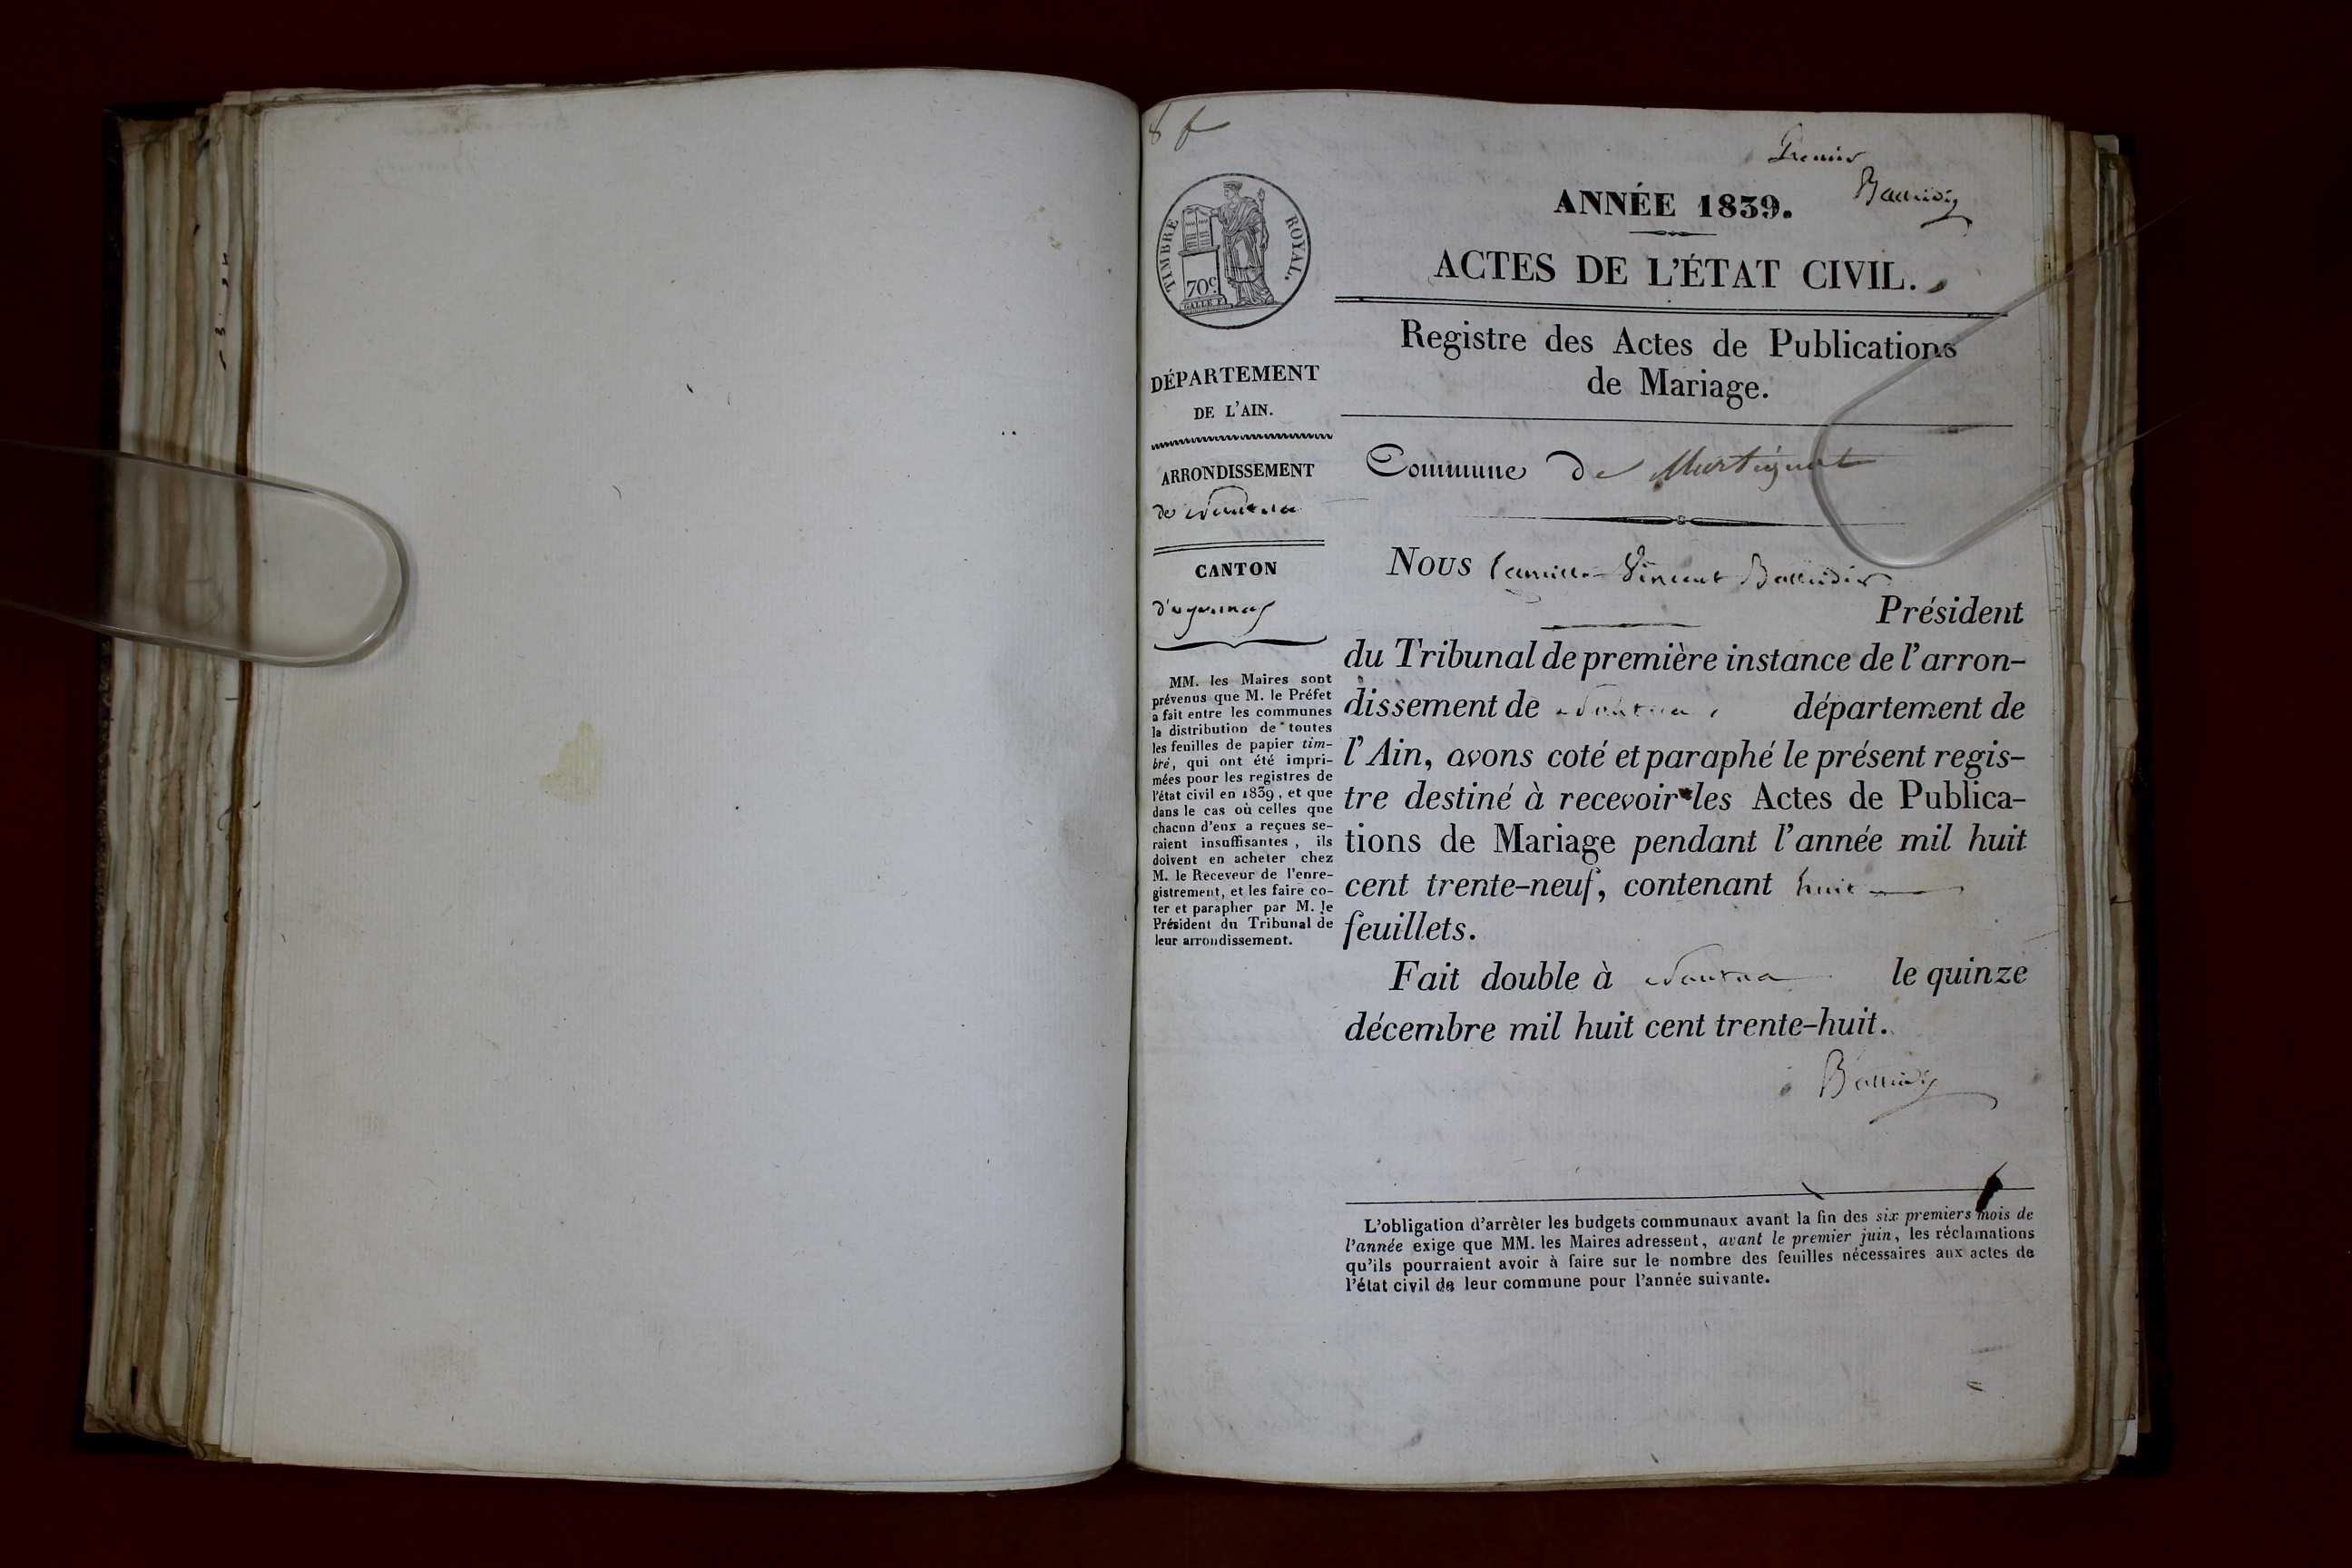 8 f
Premier
ANNÉE 1839.
ACTES DE L'ÉTAT CIVIL.
TIMBRE ROYAL.
70c
GALLE F.
Registre des Actes de Publications
de Mariage.
DÉPARTEMENT
DE L'AIN.
ARRONDISSEMENT
de Nantua
CANTON
d'oyonnax
MM. les Maires sont
prévenus que M. le Préfet
a fait entre les communes
la distribution de toutes
les feuilles de papier tim-
bré, qui ont été impri-
mées pour les registres de
l'état civil en 1839, et que
dans le cas où celles que
chacun d'eux a reçues se-
raient insuffisantes, ils
doivent en acheter chez
M. le Receveur de l'enre-
gistrement, et les faire co-
ter et parapher par M. le
Président du Tribunal de
leur arrondissement.
Commune de Martignat
Nous Camille Vincent
Président
du Tribunal de première instance de l'arron-
dissement de Nantua, département de
l'Ain, avons coté et paraphé le présent regis-
tre destiné à recevoir les Actes de Publica-
tions de Mariage pendant l'année mil huit
cent trente-neuf, contenant huit
feuillets.
Fait double à Nantua le quinze
décembre mil huit cent trente-huit.
L'obligation d'arrêter les budgets communaux avant la fin des six premiers mois de
l'année exige que MM. les Maires adressent, avant le premier juin, les réclamations
qu'ils pourraient avoir à faire sur le nombre des feuilles nécessaires aux actes de
l'état civil de leur commune pour l'année suivante.